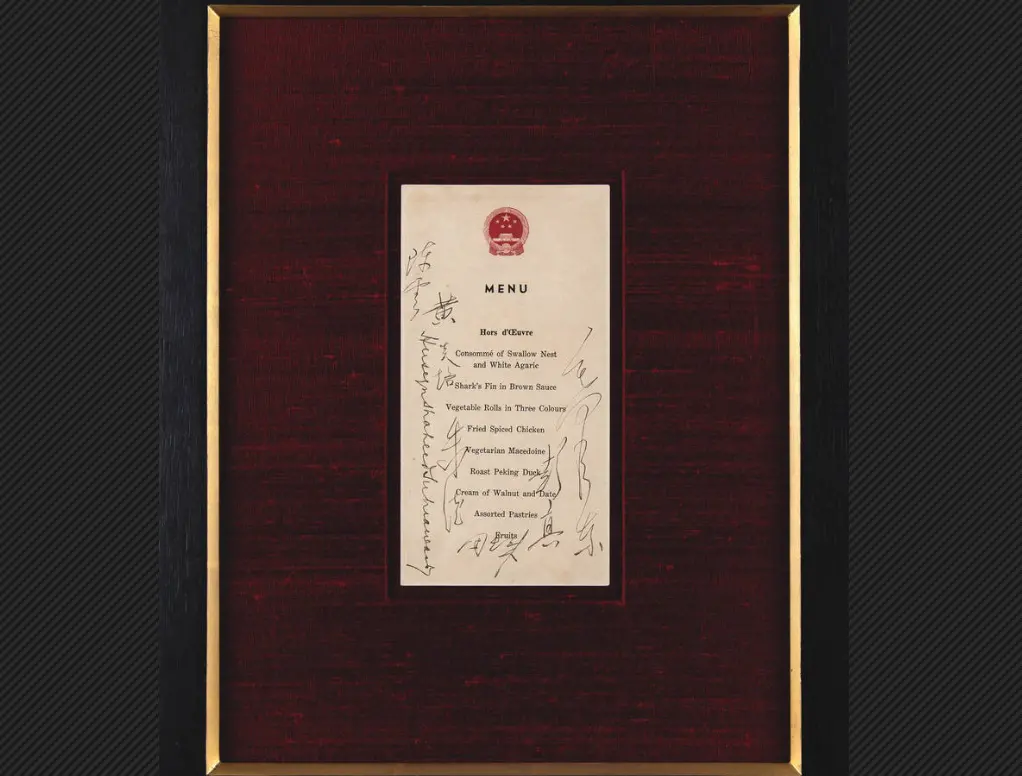 MENU
Hors d'Œuvre
Consommé of Swallow Nest
and White Agaric
Shark's Fin in Brown Sauce
Vegetable Rolls in Three Colours
Fried Spiced Chicken
Vegetarian Macedoine
Roast Peking Duck
Cream of Walnut and Date
Assorted Pastries
Fruits
Huseyn Shaheed Suhrawardy